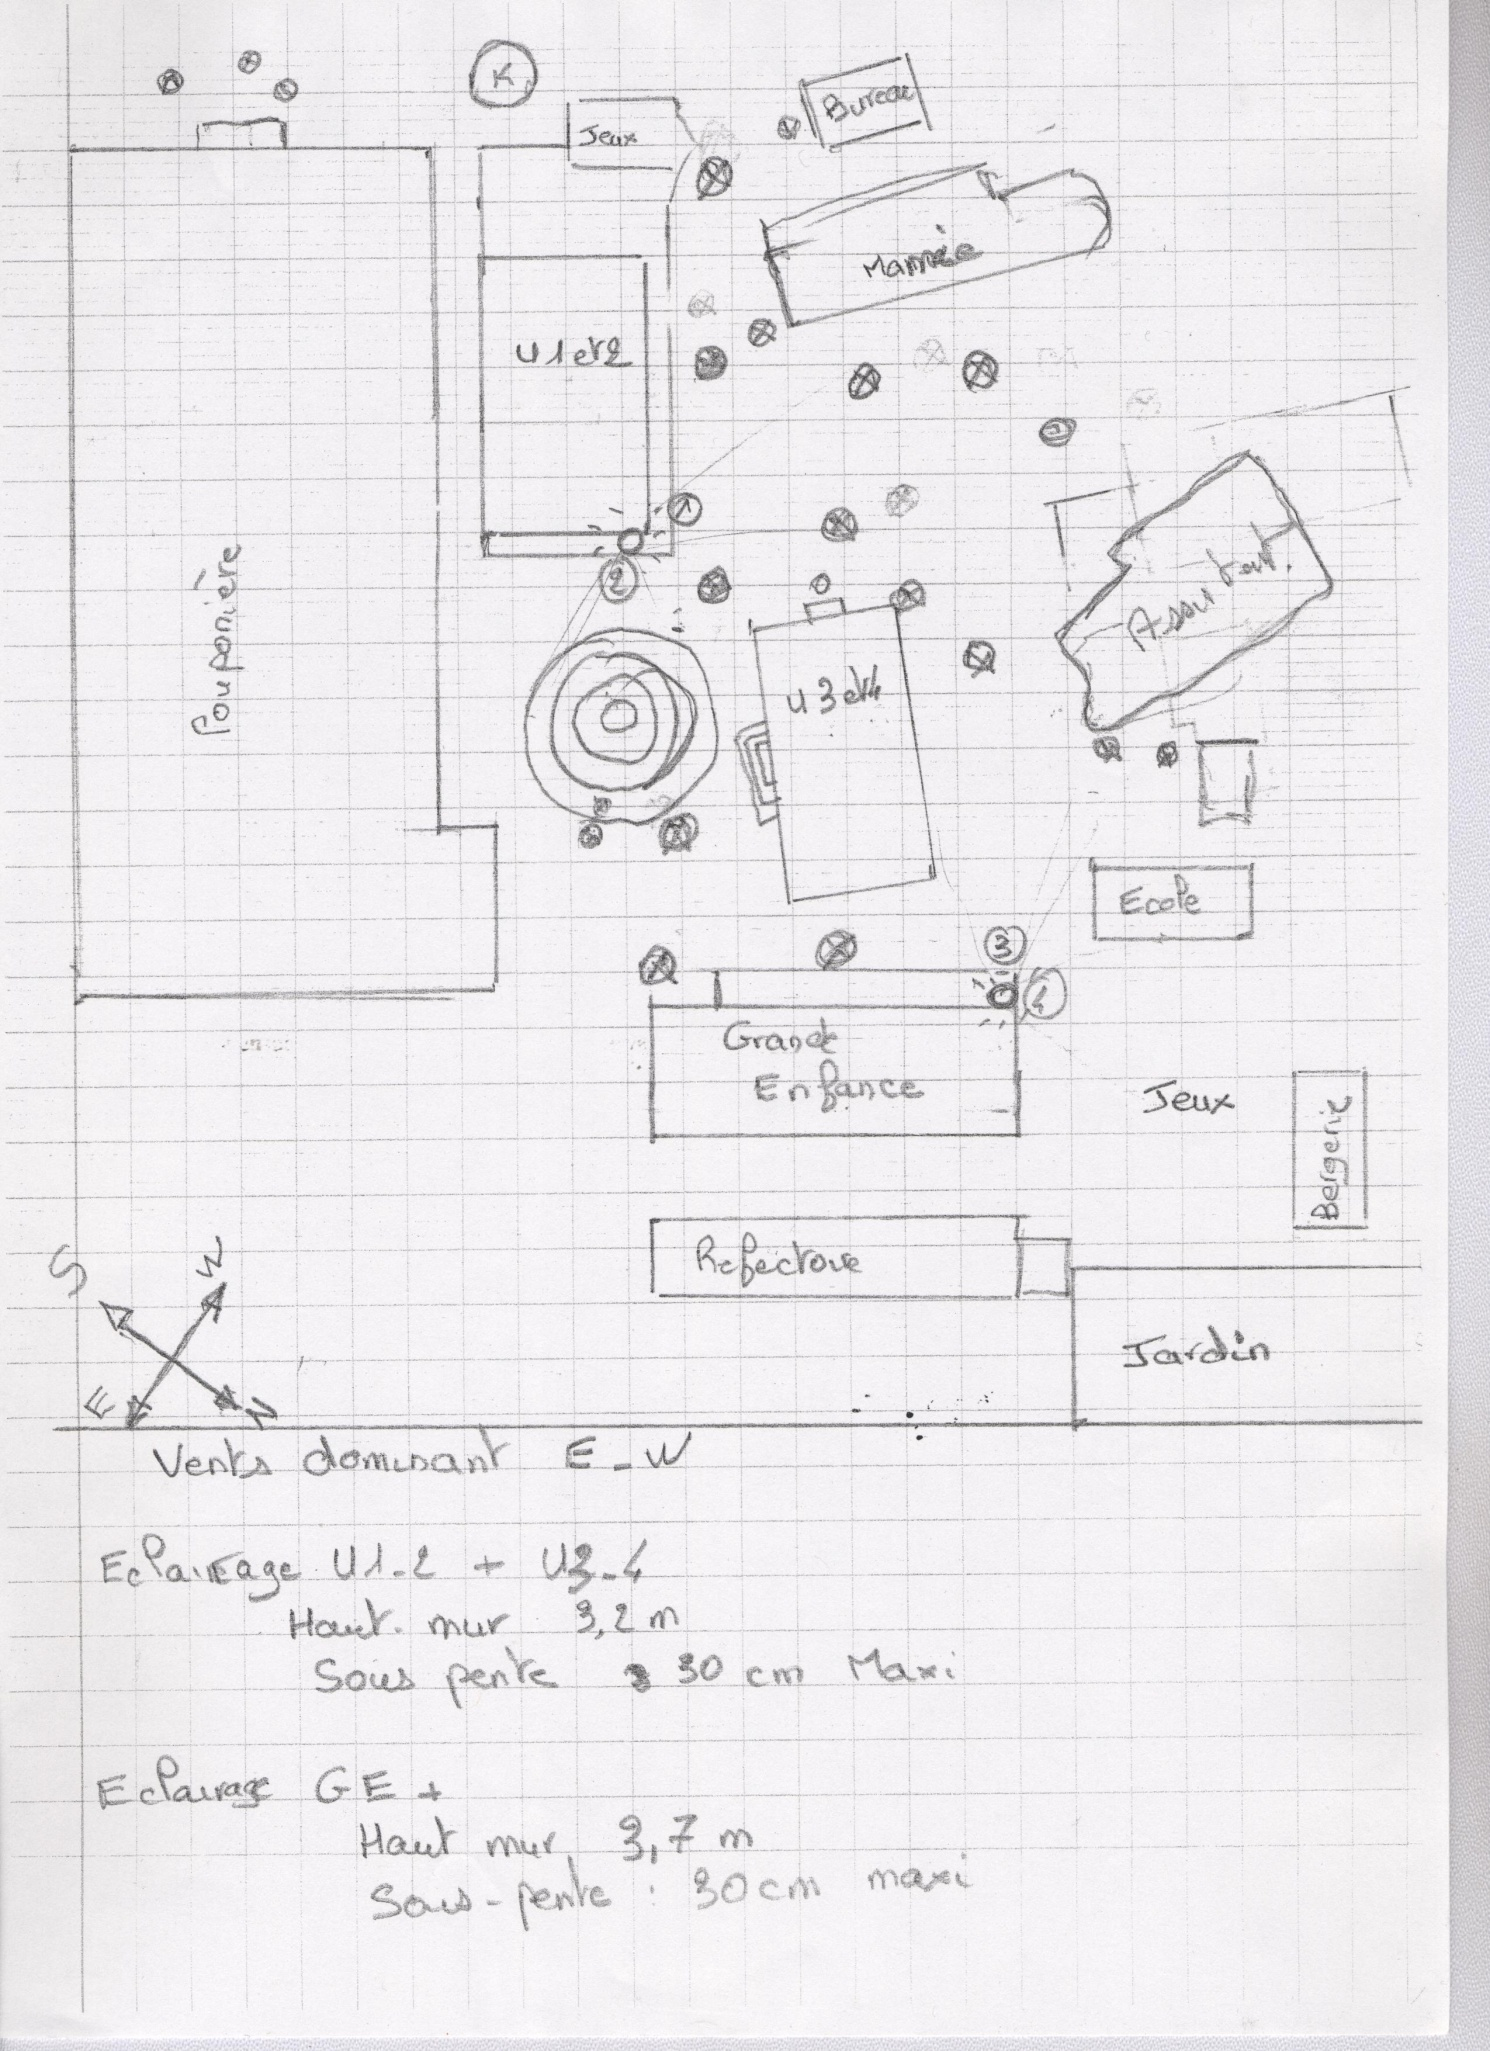 K
Bureau
Jeux
Mamée
U1et2
1
2
Pouponière
U3et4
Ecole
3
4
Grande
Enfance
Jeux
Bergerie
Refectoire
Jardin
S
W
E
N
Vents dominant E-W
Eclairage U1-2 + U3-4
Haut. mur 3,2 m
Sous pente 30 cm Maxi
Eclairage GE +
Haut mur 3,7 m
Sous-pente : 30cm maxi